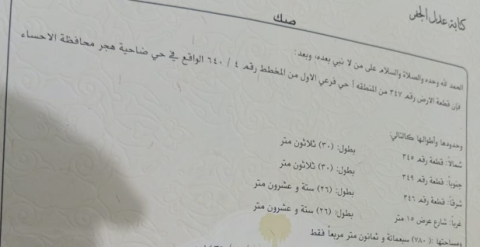 كتابة عدل الجفر
صك
الحمد لله وحده والصلاة والسلام على من لا نبي بعده، وبعد:
فإن قطعة الارض رقم ٣٤٧ من المنطقه أ حي فرعي الاول من المخطط رقم ٤ / ٦٤٠ الواقع في حي ضاحية هجر محافظة الاحساء
وحدودها وأطوالها كالتالي:
شمالاً: قطعة رقم ٣٤٥ بطول: (٣٠) ثلاثون متر
جنوباً: قطعة رقم ٣٤٩ بطول: (٣٠) ثلاثون متر
شرقاً: قطعة رقم ٣٤٦ بطول: (٢٦) ستة و عشرون متر
غرباً: شارع عرض ١٥ متر بطول: (٢٦) ستة و عشرون متر
ومساحتها: (٧٨٠) سبعمائة و ثمانون متر مربعاً فقط